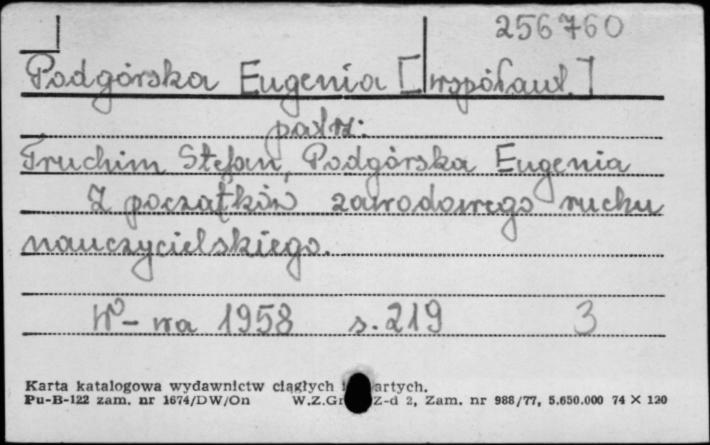 256760
Podgórska Eugenia [współaut.]
patrz:
Truchim Stefan, Podgórska Eugenia
Z początków zawodowego ruchu
nauczycielskiego.
W-wa 1958 s. 219 3
Karta katalogowa wydawnictw ciągłych i artych.
Pu-B-122 zam. nr 1674/DW/On W.Z.Gr Z-d 2, Zam. nr 988/77, 5.650.000 74 X 120